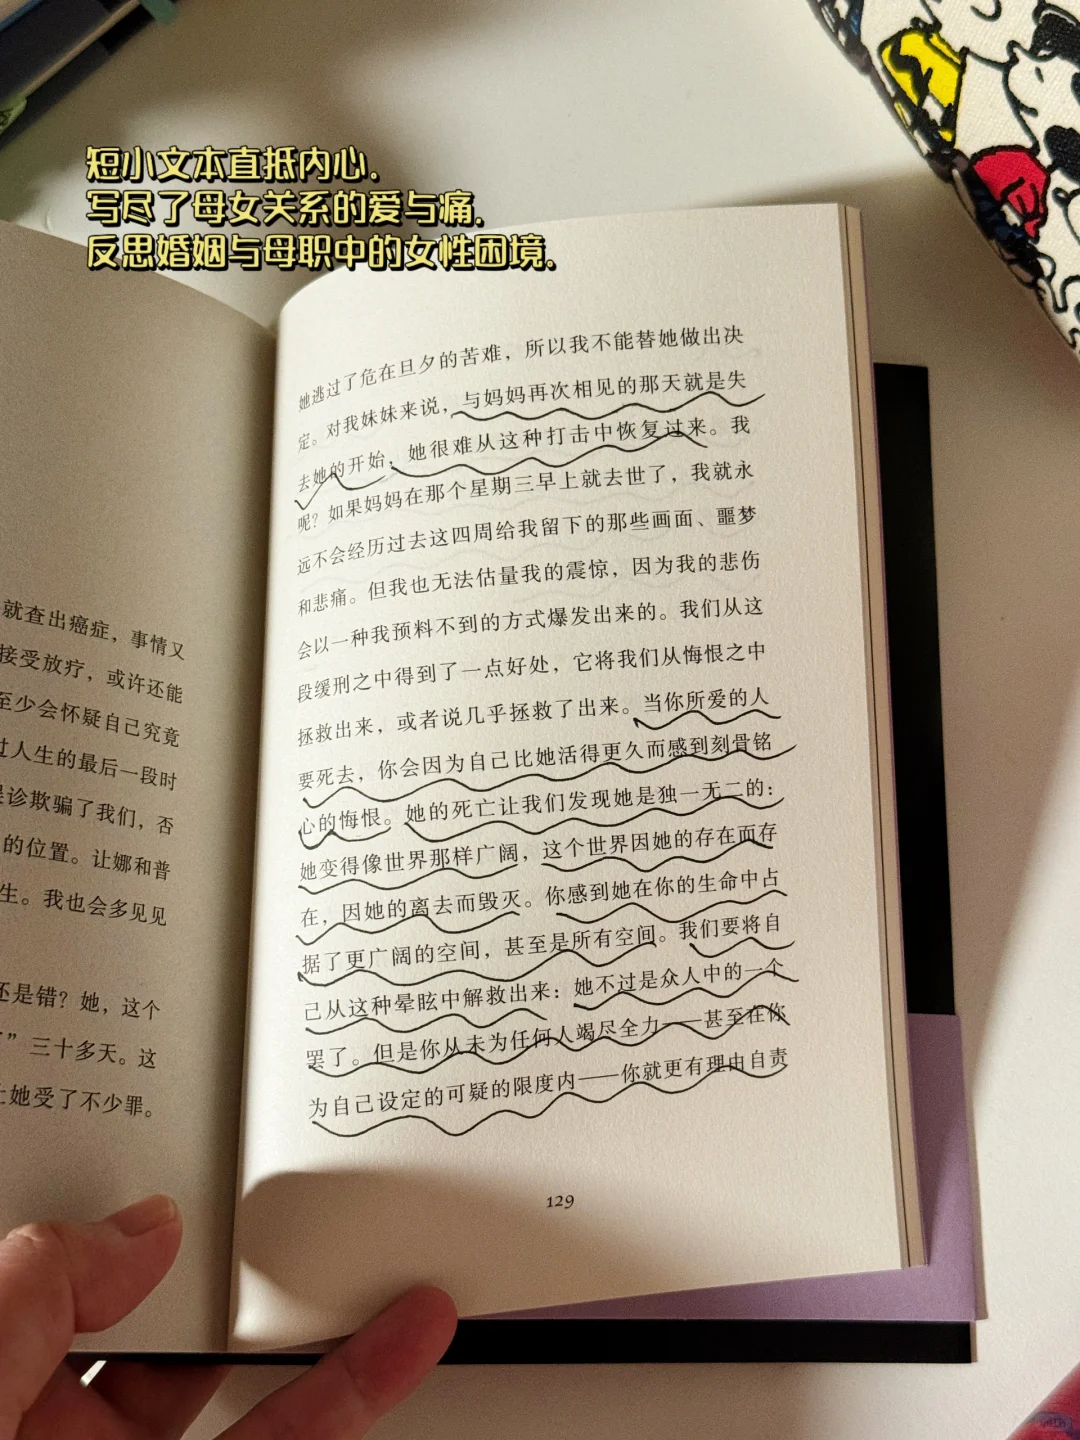 短小文本直抵内心.
写尽了母女关系的爱与痛.
反思婚姻与母职中的女性困境.
就查出癌症，事情又
接受放疗，或许还能
至少会怀疑自己究竟
过人生的最后一段时
诊欺骗了我们，否
的位置。让娜和普
生。我也会多见见
还是错？她，这个
”三十多天。这
让她受了不少罪。
她逃过了危在旦夕的苦难，所以我不能替她做出决
定。对我妹妹来说，与妈妈再次相见的那天就是失
去她的开始，她很难从这种打击中恢复过来。我
呢？如果妈妈在那个星期三早上就去世了，我就永
远不会经历过去这四周给我留下的那些画面、噩梦
和悲痛。但我也无法估量我的震惊，因为我的悲伤
会以一种我预料不到的方式爆发出来的。我们从这
段缓刑之中得到了一点好处，它将我们从悔恨之中
拯救出来，或者说几乎拯救了出来。当你所爱的人
要死去，你会因为自己比她活得更久而感到刻骨铭
心的悔恨。她的死亡让我们发现她是独一无二的：
她变得像世界那样广阔，这个世界因她的存在而存
在，因她的离去而毁灭。你感到她在你的生命中占
据了更广阔的空间，甚至是所有空间。我们要将自
己从这种晕眩中解救出来：她不过是众人中的一个
罢了。但是你从未为任何人竭尽全力——甚至在你
为自己设定的可疑的限度内——你就更有理由自责
129